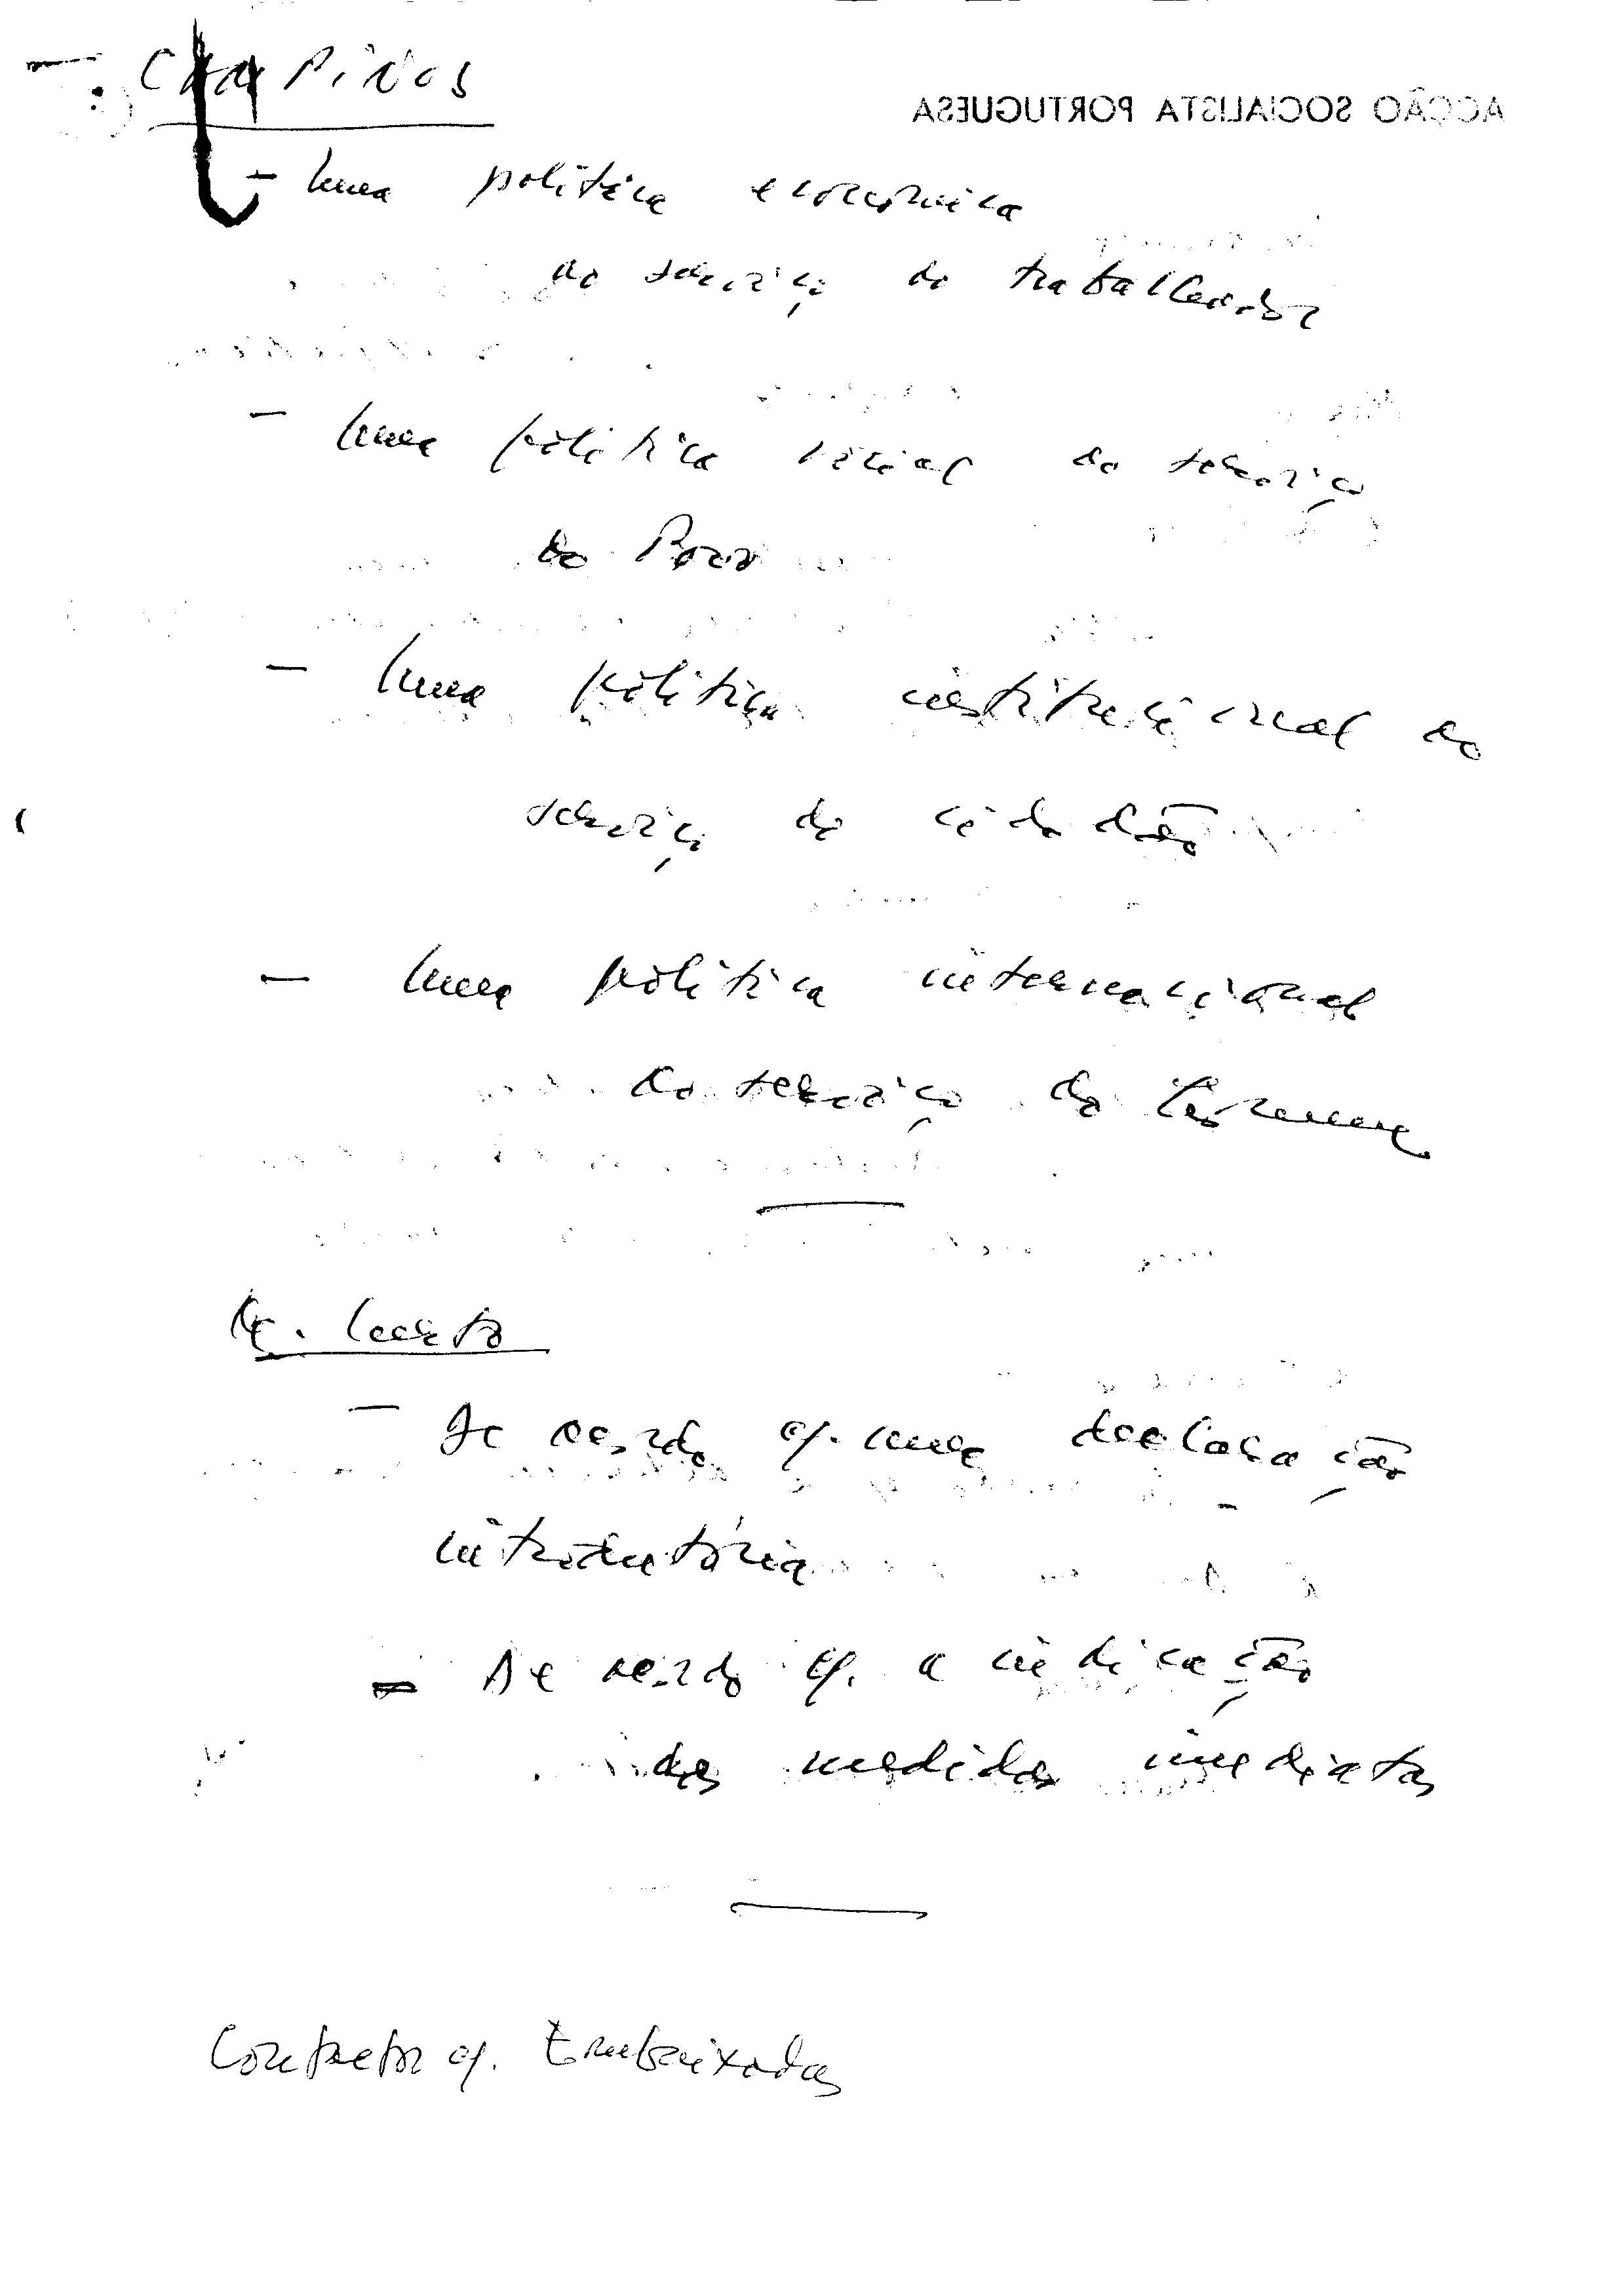 - CAMPINOS
ACÇÃO SOCIALISTA PORTUGUESA
- uma política economica
ao serviço do trabalhador
- uma política social ao serviço
do Povo
- uma política institucional ao
serviço do cidadão
- uma política internacional
ao serviço do Homem
- De acordo c/. uma declaração
introdutória
- De acordo c/. a indicação
das medidas imediatas
Contactos c/. Embaixadas